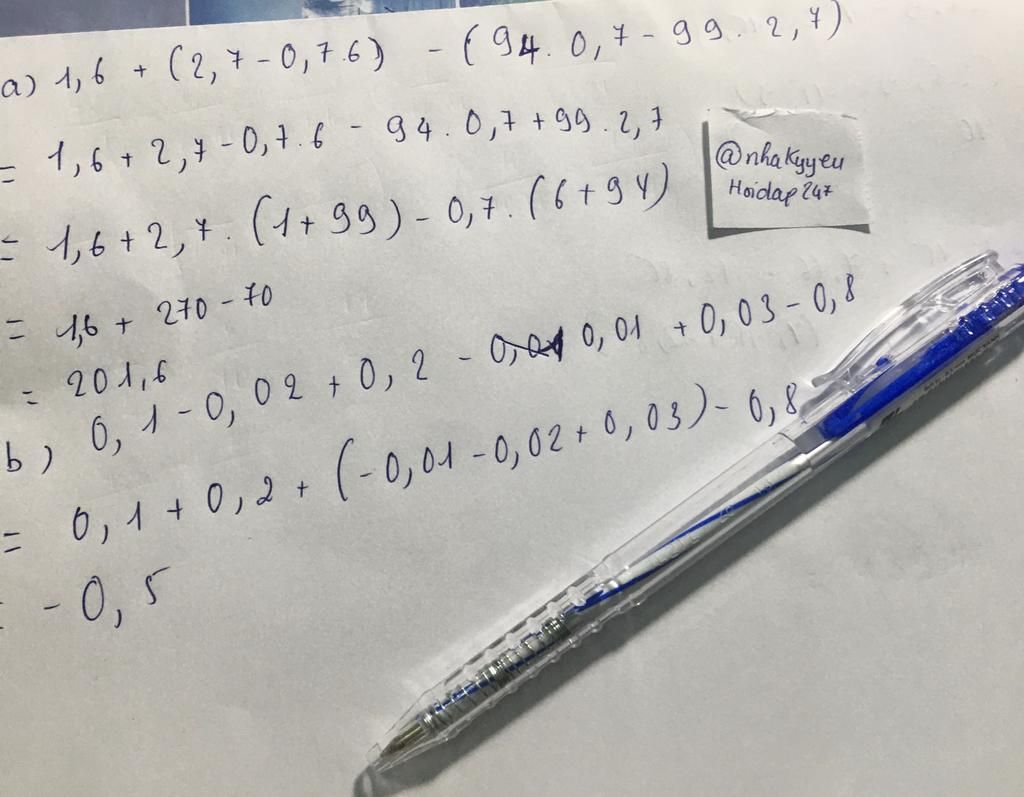 a) 1,6 + (2,7 - 0,7.6) - (94. 0,7 - 99. 2,7)
= 1,6 + 2,7 - 0,7.6 - 94. 0,7 + 99. 2,7
= 1,6 + 2,7. (1 + 99) - 0,7. (6 + 94)
= 1,6 + 270 - 70
= 201,6
b) 0,1 - 0,02 + 0,2 - 0,01 + 0,03 - 0,8
= 0,1 + 0,2 + (-0,01 - 0,02 + 0,03) - 0,8
= -0,5
@nhaKyyeu
Hoidap247